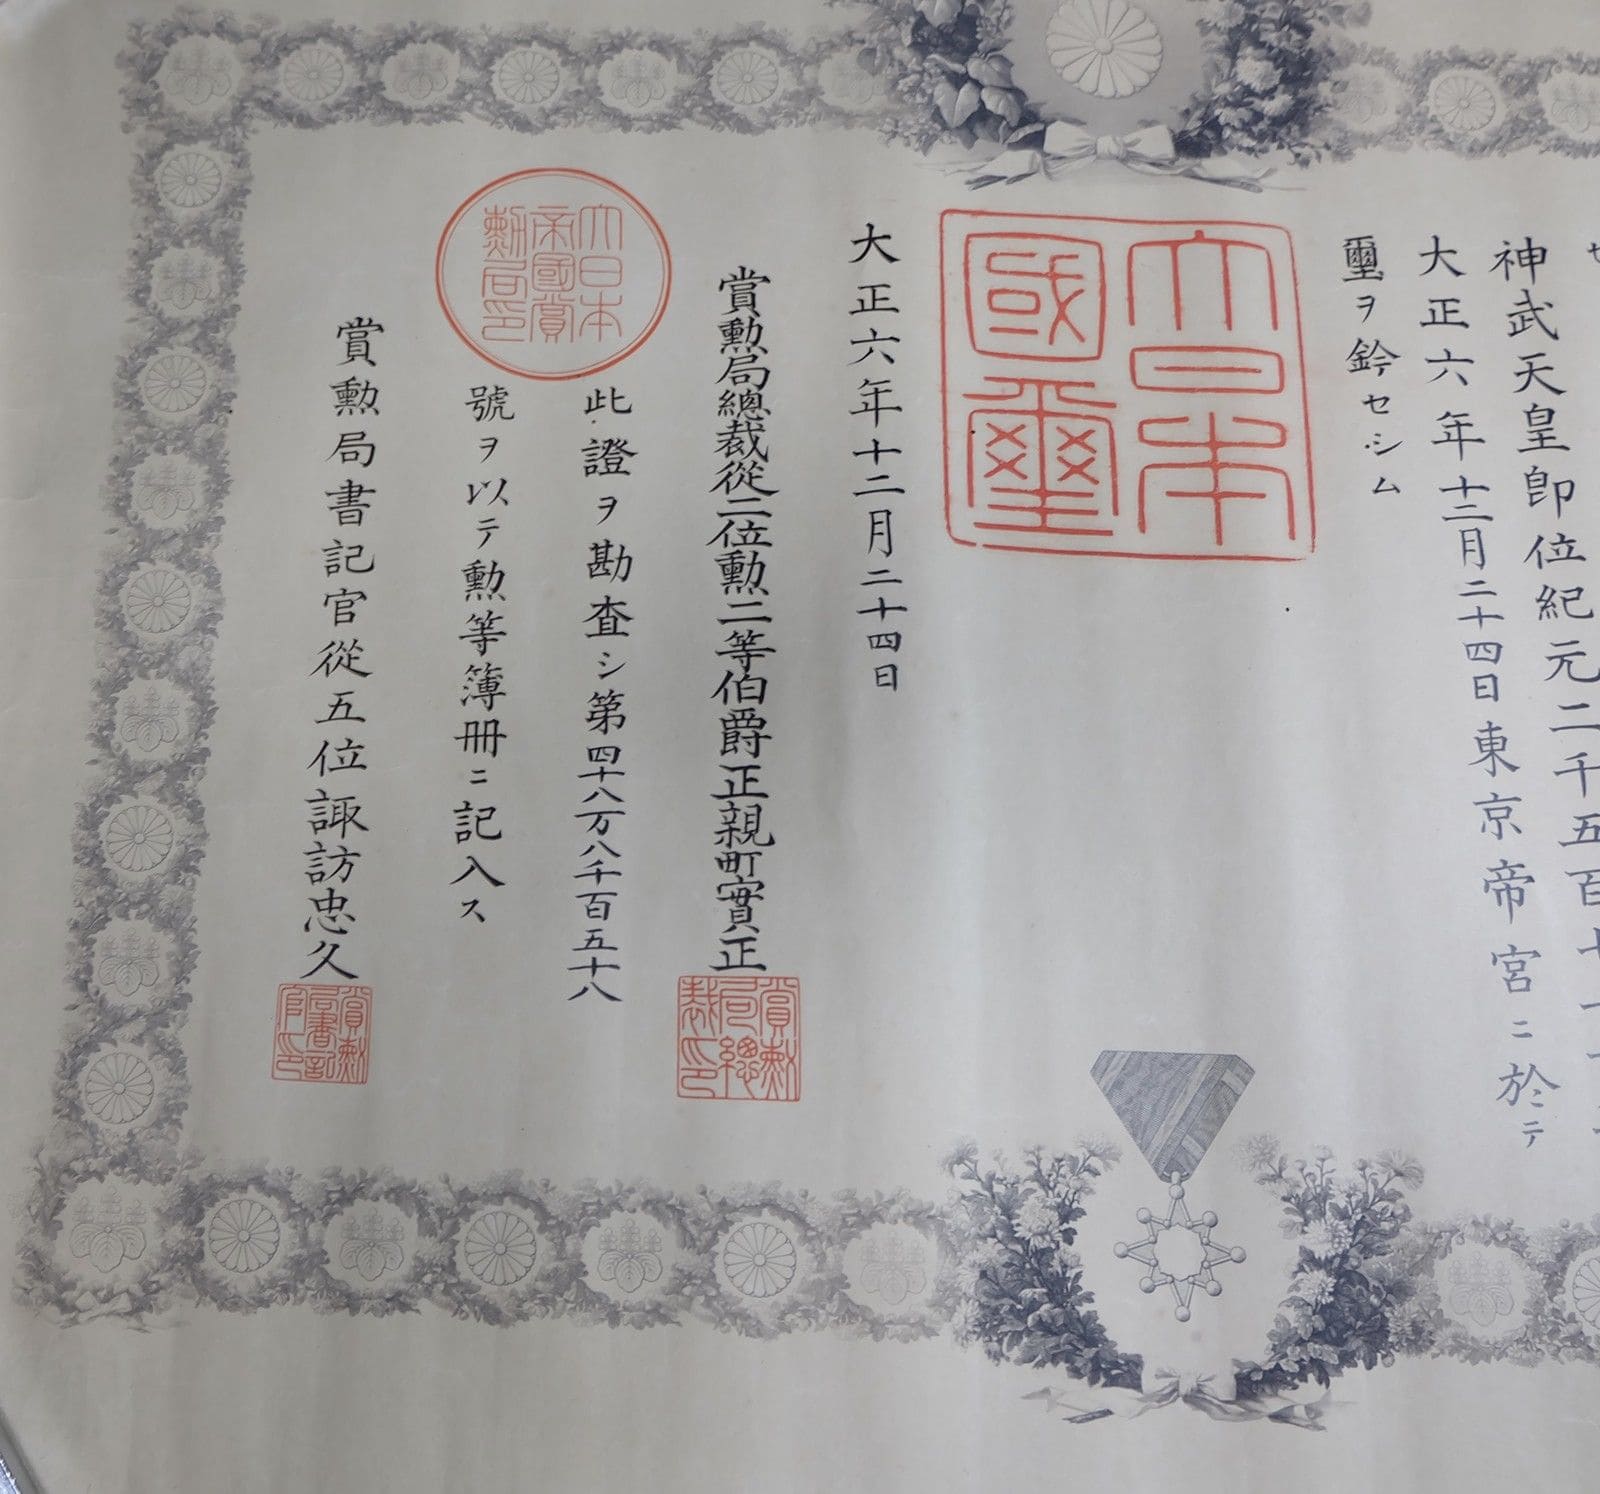 神武天皇卽位紀元二千五百七十
大正六年十二月二十四日東京帝宮ニ於テ
璽ヲ鈐セシム
大日本國璽
大正六年十二月二十四日
賞勲局總裁從二位勲二等伯爵正親町實正
賞勳局總裁印
大日本帝國賞勳局印
此證ヲ勘査シ第四十八万八千百五十八
號ヲ以テ勲等簿冊ニ記入ス
賞勲局書記官從五位諏訪忠久
賞勳局書記官印